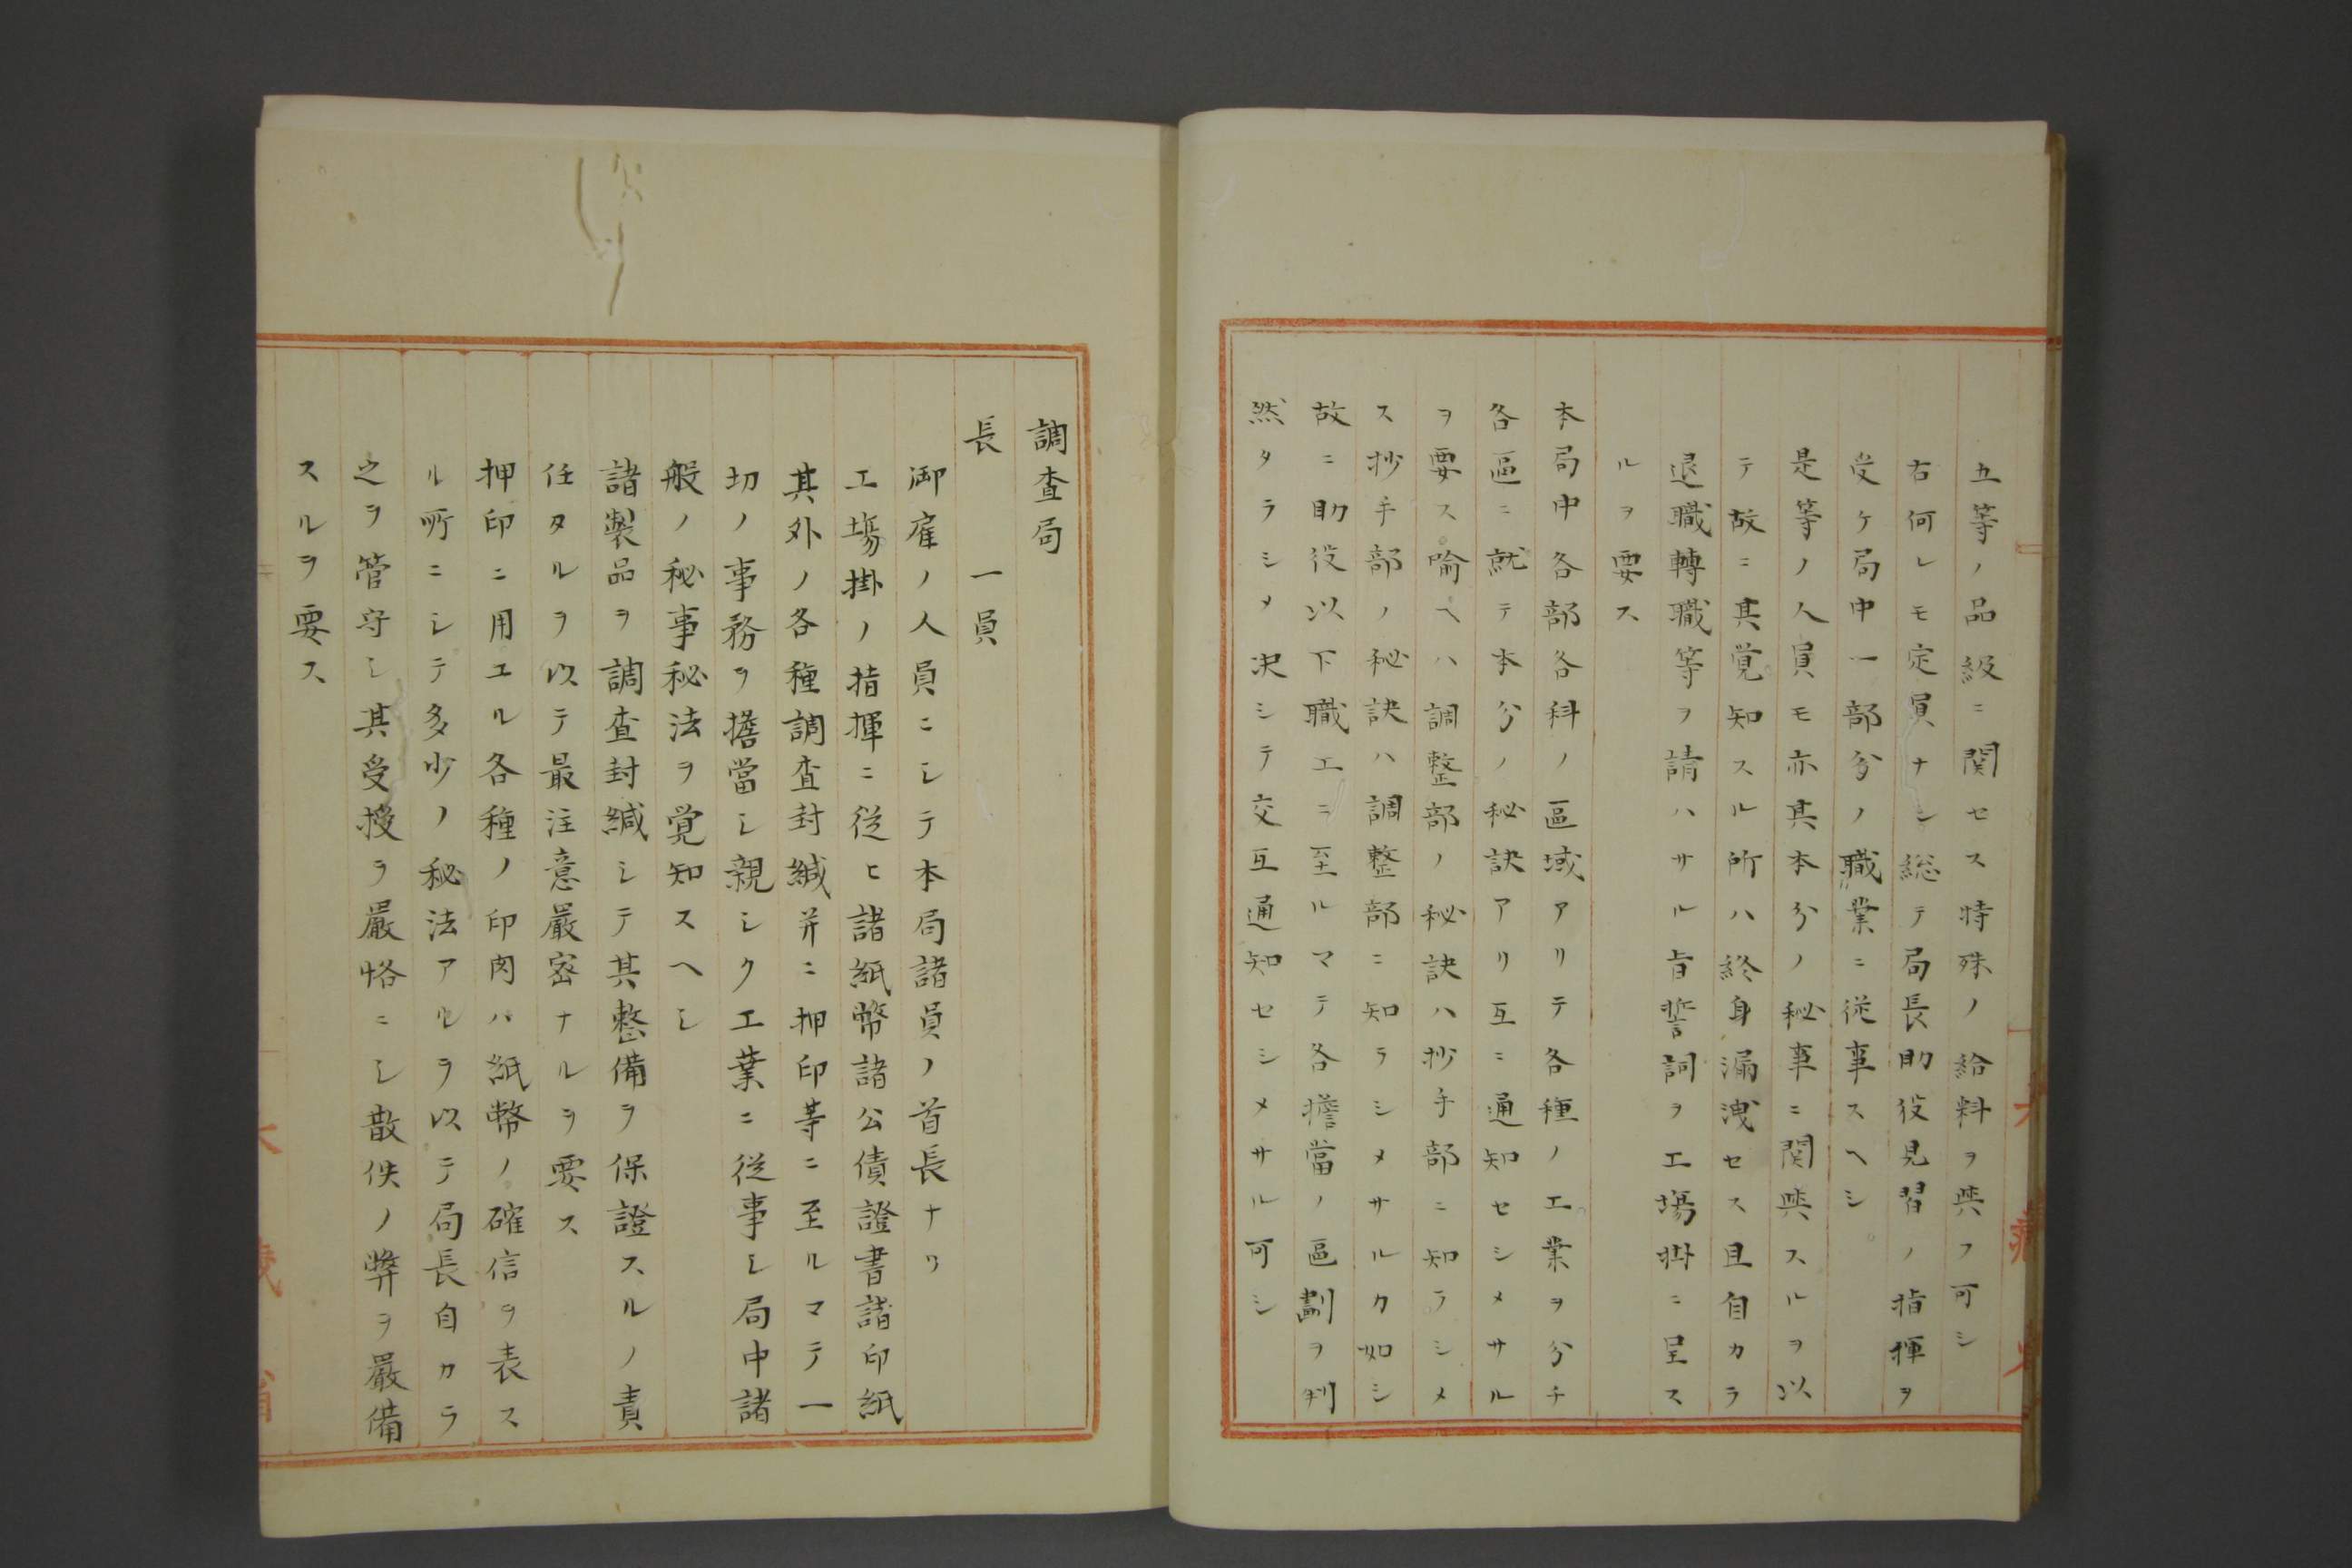 五等ノ品級ニ関セス特殊ノ給料ヲ與フ可シ
右何レモ定員ナシ総テ局長助役見習ノ指揮ヲ
受ケ局中一部分ノ職業ニ従事スヘシ
是等ノ人員モ亦其本分ノ秘事ニ関與スルヲ以
テ故ニ其覚知スル所ハ終身漏洩セス且自カラ
退職轉職等ヲ請ハサル旨誓詞ヲ工場掛ニ呈ス
ルヲ要ス
本局中各部各科ノ區域アリテ各種ノ工業ヲ分チ
各區ニ就テ本分ノ秘訣アリ互ニ通知セシメサル
ヲ要ス喩ヘハ調整部ノ秘訣ハ抄手部ニ知ラシメ
ス抄手部ノ秘訣ハ調整部ニ知ラシメサルカ如シ
故ニ助役以下職工ニ至ルマテ各擔當ノ區劃ヲ判
然タラシメ决シテ交互通知セシメサル可シ
調査局
長 一員
御雇ノ人員ニシテ本局諸員ノ首長ナリ
工場掛ノ指揮ニ従ヒ諸紙幣諸公債證書諸印紙
其外ノ各種調査封緘并ニ押印等ニ至ルマテ一
切ノ事務ヲ擔當シ親シク工業ニ従事シ局中諸
般ノ秘事秘法ヲ覚知スヘシ
諸製品ヲ調査封緘シテ其整備ヲ保證スルノ責
任タルヲ以テ最注意嚴密ナルヲ要ス
押印ニ用エル各種ノ印肉ハ紙幣ノ確信ヲ表ス
ル所ニシテ多少ノ秘法アルヲ以テ局長自カラ
之ヲ管守シ其受授ヲ嚴恪ニシ散佚ノ弊ヲ嚴備
スルヲ要ス